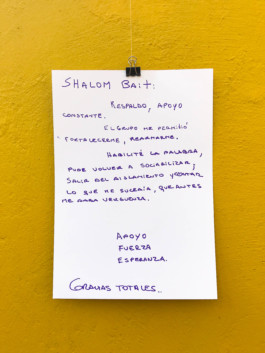 SHALOM BAIT:
RESPALDO, APOYO
CONSTANTE.
EL GRUPO ME PERMITIÓ
FORTALECERME, REARMARME.
HABILITÉ LA PALABRA,
PUDE VOLVER A SOCIABILIZAR,
SALIR DEL AISLAMIENTO Y CONTAR
LO QUE ME SUCEDÍA, QUE ANTES
ME DABA VERGUENZA.
APOYO
FUERZA
ESPERANZA.
GRACIAS TOTALES..